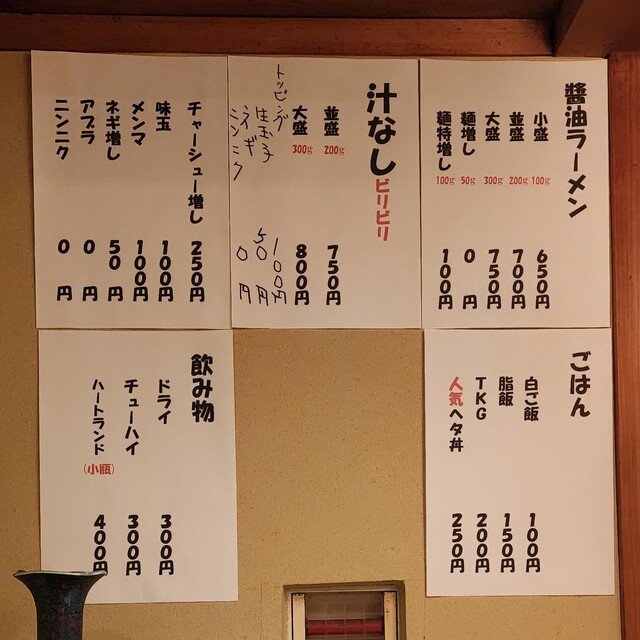 醤油ラーメン
小盛 100g 650円
並盛 200g 700円
大盛 300g 750円
麺増し 50g 0円
麺特増し 100g 100円
汁なしビリビリ
並盛 200g 750円
大盛 300g 800円
トッピング
生玉子 100円
ネギ 50円
ニンニク 0円
チャーシュー増し 250円
味玉 100円
メンマ 100円
ネギ増し 50円
アブラ 0円
ニンニク 0円
ごはん
白ご飯 100円
脂飯 150円
TKG 200円
人気ヘタ丼 250円
飲み物
ドライ 300円
チューハイ 300円
ハートランド(小瓶) 400円